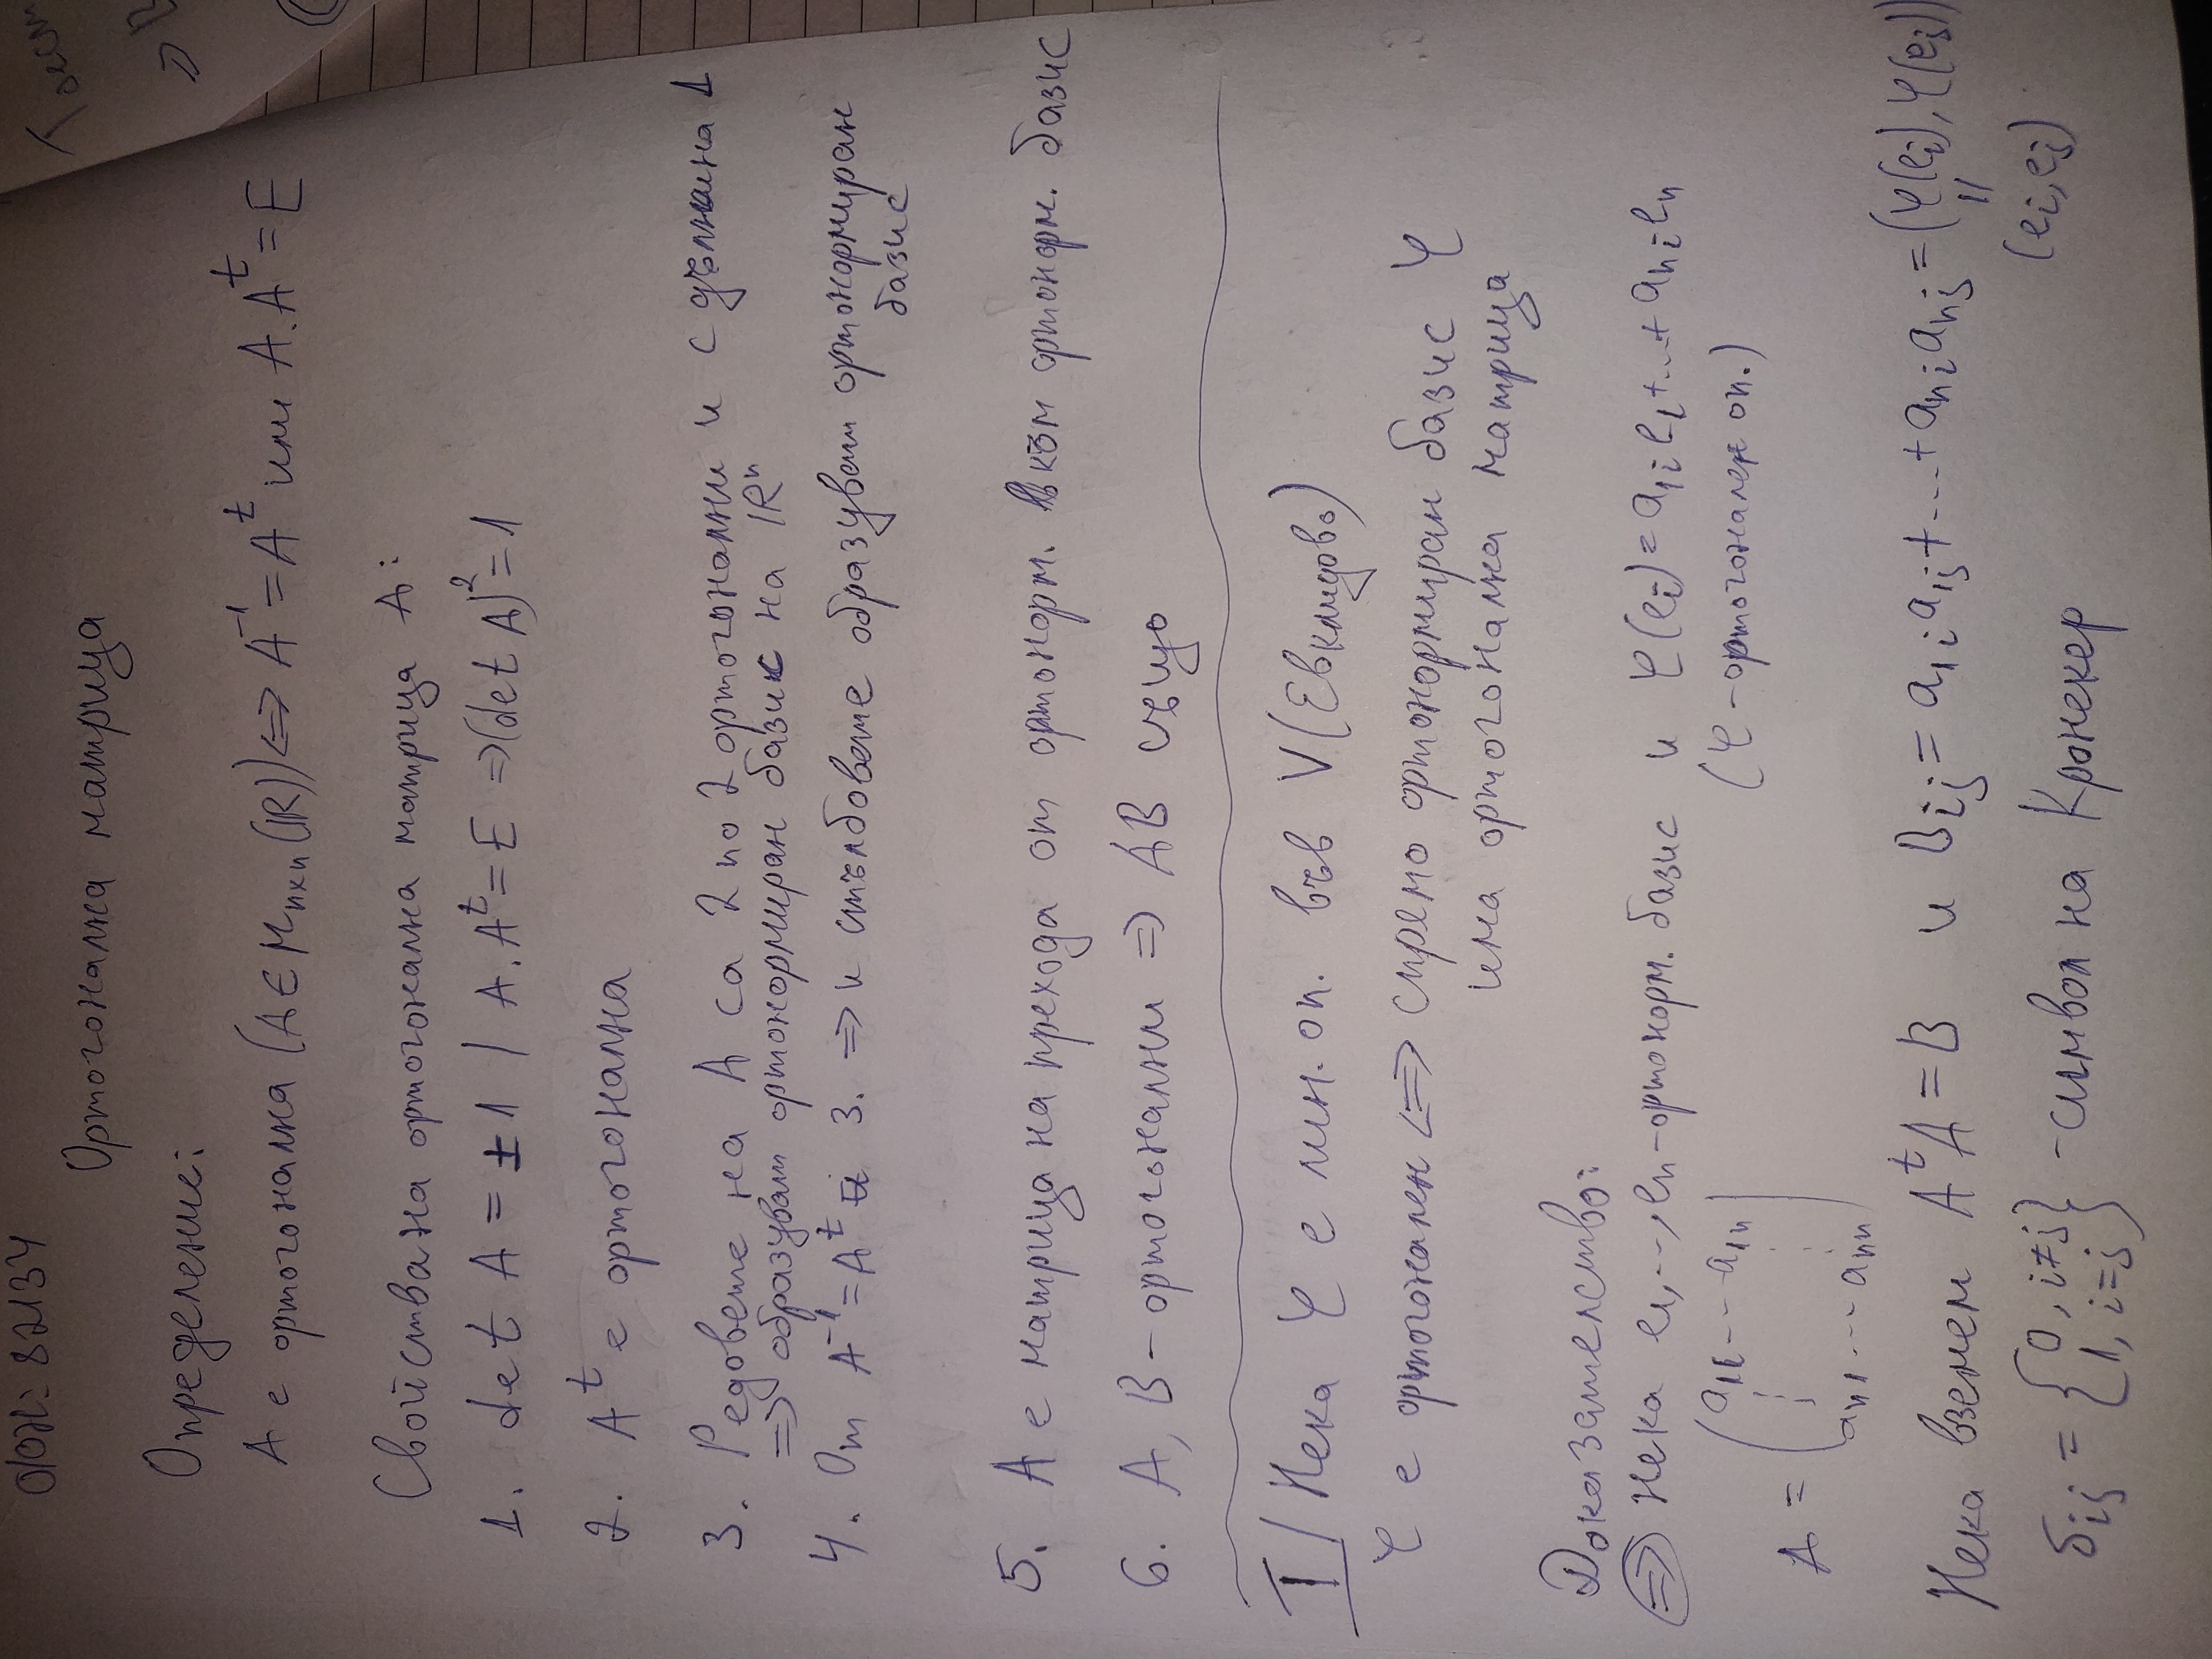 ФН: 82134
Ортогонална матрица
Определение:
А е ортогонална (A ∈ M_{nxn}(ℝ)) <=> A^{-1} = A^t или A.A^t = E
Свойства на ортогонална матрица А:
1. det A = ±1 / A.A^t = E => (det A)^2 = 1
2. A^t е ортогонална
3. Редовете на А са 2 по 2 ортогонални и с дължина 1
=> образуват ортонормиран базис на ℝ^n
4. От A^{-1} = A^t и 3. => и стълбовете образуват ортонормиран
базис
5. А е матрица на прехода от ортонорм. към ортонорм. базис
6. A, B - ортогонални => AB също
I/ Нека φ е лин. оп. във V (Евклидово)
φ е ортогонален <=> спрямо ортонормиран базис φ
има ортогонална матрица
Доказателство:
=> Нека e_1, ..., e_n - ортонорм. базис и φ(e_i) = a_{1i} e_1 + ... + a_{ni} e_n
(φ - ортогонален оп.)
A = ( a_{11} --- a_{1n}
a_{n1} --- a_{nn} )
Нека вземем A^t A = B и B_{ij} = a_{1i} a_{1j} + ... + a_{ni} a_{nj} = (φ(e_i), φ(e_j))
=
(e_i, e_j)
δ_{ij} = { 0, i≠j
1, i=j } - символ на Кронекер
Тоест
=> B